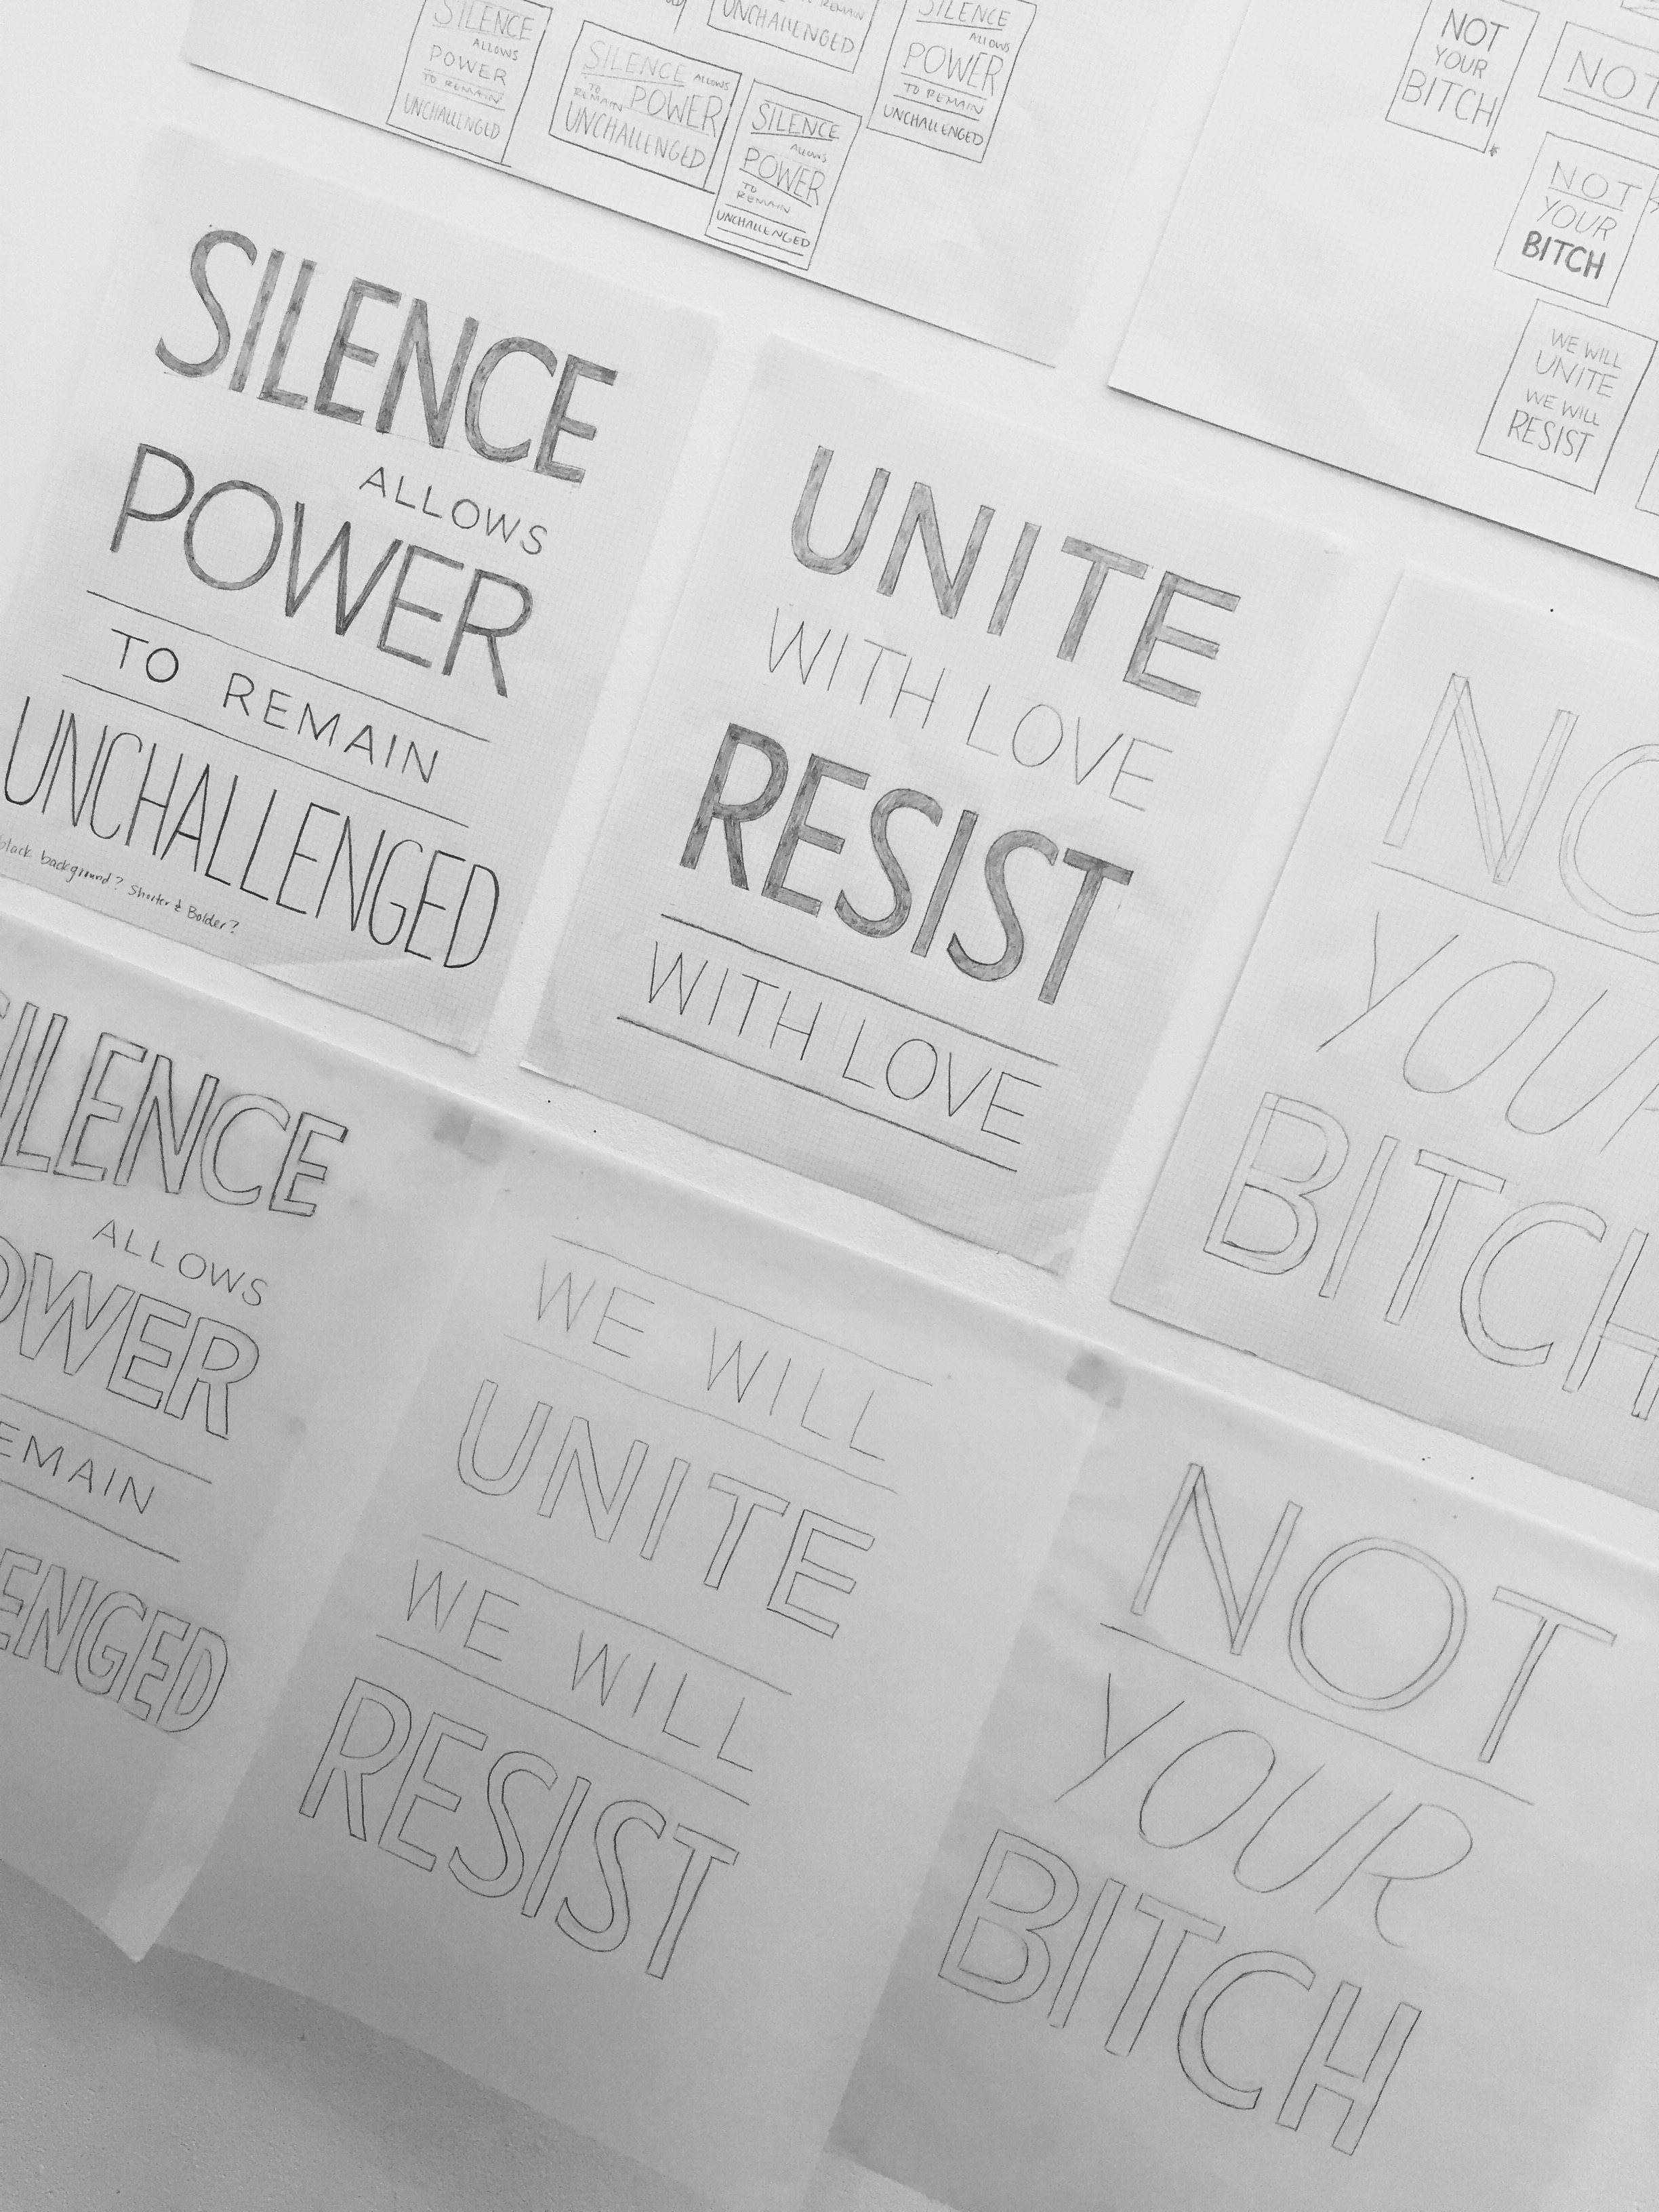 SILENCE
ALLOWS
POWER
TO REMAIN
UNCHALLENGED
SILENCE ALLOWS
TO
REMAIN POWER
UNCHALLENGED
REMAIN
UNCHALLENGED
SILENCE
ALLOWS
POWER
TO
REMAIN
UNCHALLENGED
SILENCE
ALLOWS
POWER
TO REMAIN
UNCHALLENGED
NOT
YOUR
BITCH
NOT
NOT
YOUR
BITCH
WE WILL
UNITE
WE WILL
RESIST
SILENCE
ALLOWS
POWER
TO REMAIN
UNCHALLENGED
black background? Shorter & Bolder?
UNITE
WITH LOVE
RESIST
WITH LOVE
NO
YOUR
BITCH
SILENCE
ALLOWS
OWER
EMAIN
ENGED
WE WILL
UNITE
WE WILL
RESIST
NOT
YOUR
BITCH